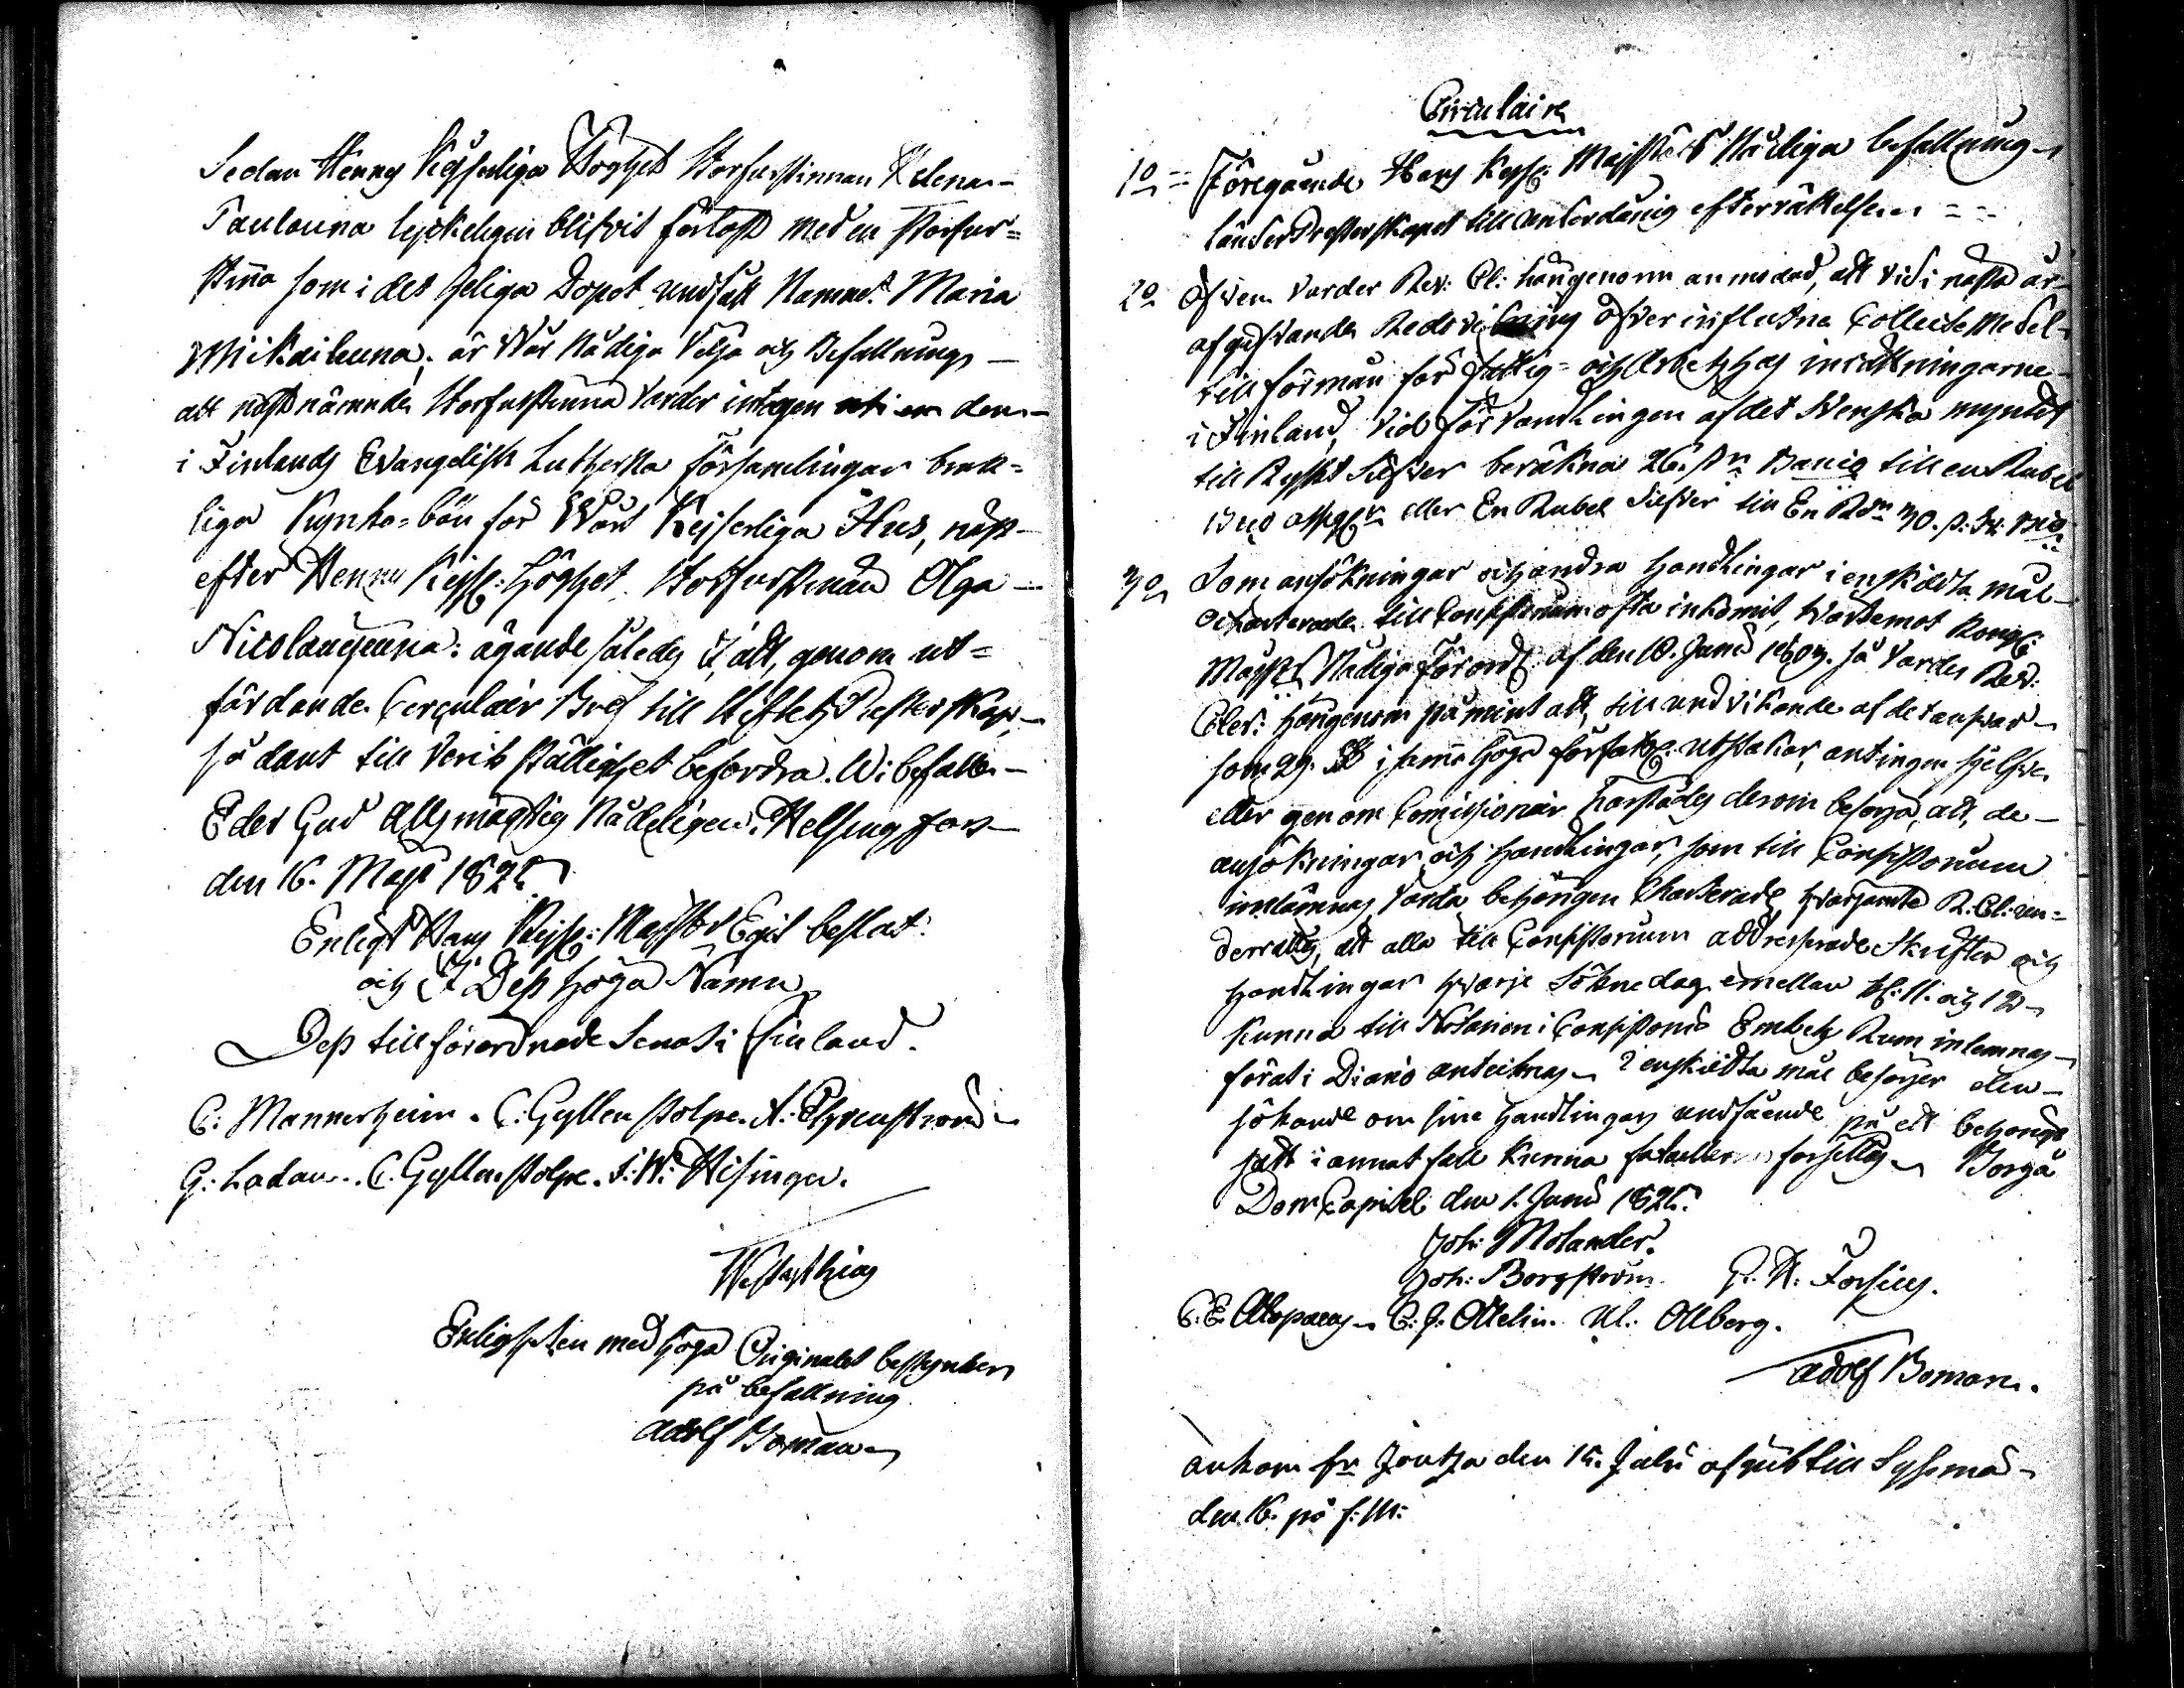 Sedan Hennes Kejserliga Höghet Storfurstinnan Helena
Paulouna lyckeligen blifvit förlöst med en Storfur=
stinna som i det heliga Dopet undfått Namnet Maria
Mikailouna; är Wår Nådiga Vilja och Befallning
att nästnämnde Storfurstinna varder intagen uti den
i Finlands Evangelisk Lutherska församlingar bruk=
liga Kyrko=bön för Wårt Kejserliga Hus, näst
efter Hennes Kejsl: Höghet Storfurstinnan Olga
Nicolaijeuna: ägande således I, att, genom ut=
färdande Circulair Bref till Stiftets Presterskap,
sådant till verkställighet befordra. Wi befalle
Eder Gud Allsmägtig Nådeligen. Helsingfors
den 16. Maji 1825.
Enligt Hans Kejsl: Maj:sts Egit beslut
och I Dess höga Namn
Dess tillförordnade Senat i Finland.
C: Mannerheim. C: Gyllenstolpe. A: Ehrenström
G: Ladau. C. Gyllenstolpe. F: W: Hisinger.
Enligheten med höga Originalet bestyrker
på befallning
Adolf Boman
Circulaire
1o = Föregående Hans Kejsl: Majsts Nådiga befallning
länder Presterskapet till underdånig efterrättelse = =
2o Äfven varder Rev: Cl: härigenom anmodad, att vid i nästa år
afgifvande Redovisning öfver influtne Collecte Medel
till förmån för fattig= och Arbetshus inrättningarne
i Finland, vid förvandlingen af det Svenska myntet
till Ryskt Silfver beräkna 26. Banco till en Rubel
eller En Rubel Silfver till En 30. s:
3o Som ansökningar och andra handlingar i enskildta mål
till Consistorium ofta inkomit, hvaremot Kongl:
Maj:sts Nådiga Förord: af den 10. Junii så varder Rev:
Cler: härigenom påmint att, till undvikande af det ansvar
som 29. § i samma höga författn: utstakar, antingen sjelfve
eller genom Comissionair härstädes derom besörja, att, de
ansökningar och handlingar, som till Consistorium
inlämnas, varda behörigen Charterade, hvarjemte R: Cl: un=
derrättas, att alla till Consistorium addresserade Skrifter och
handlingar hvarje Söknedag emellan kl: 11. och 12
kunna till Notarien i Consistorii Embets Rum inlemnas
för at i Diario antecknas. I enskildta mål besörjer den
sökande om sine handlingars undfående på ett behörigt
sätt i annat fall kunna fatalierne försittas. Borgå
Dom Capitel den 1. Junii 1825.
Joh: Molander.
Joh: Borgström. G. H: Forsius.
C. E. Alopaeus C. J. Ottelin. Ul: Ollberg.
Adolf Boman.
ankom fr Joutsa den 15. Julii afgick till Sysmä
den 16. på f: M: